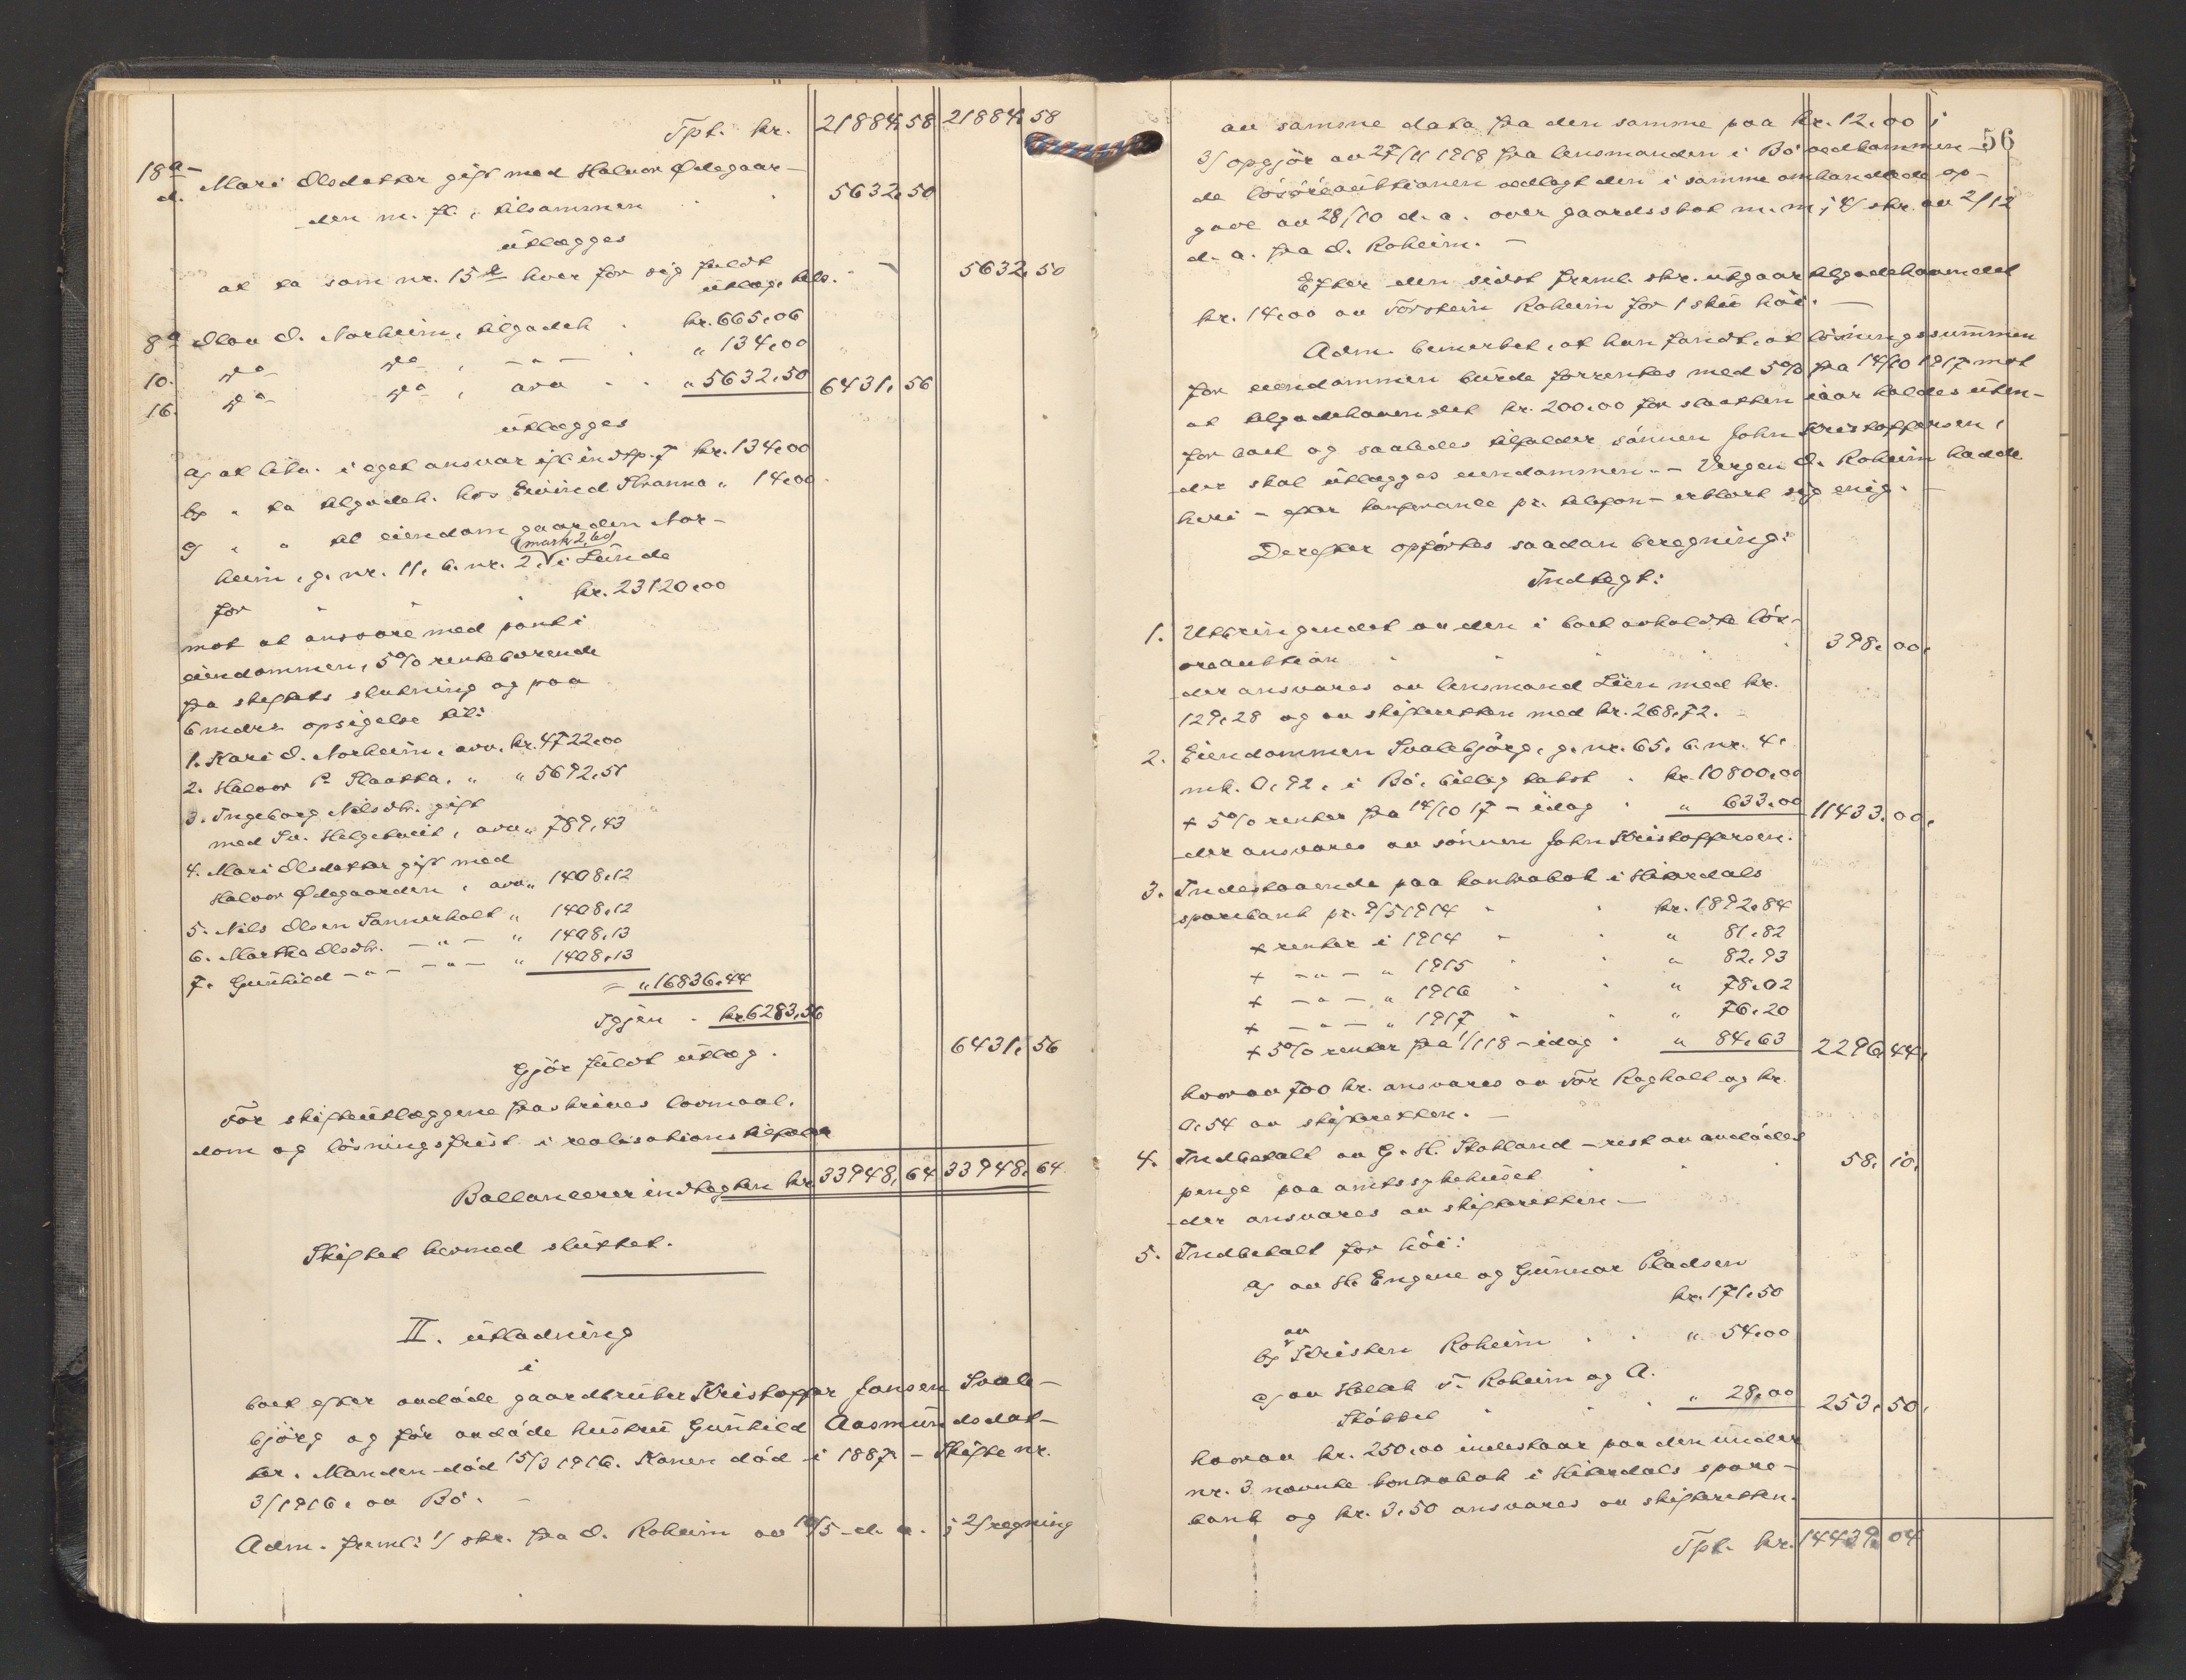 Tpt. kr. 21884,58 21884,58
18a-d. Mari Olsdatter gift med Halvor Ødegaar-
den m. fl., tilsammen 5632,50
utlægges
at ta som nr. 15 hver for sig fuldt
utlæg, tils. 5632,50
8a Olav O. Norheim, tilgodeh. kr. 665,06
10. do do, -"- " 134,00
16. do do, arv " 5632,50 6431,56
utlægges
a) at likv. i eget ansvar ifl. indtp. 7 kr. 134,00
b) " ta tilgodeh. hos Eivind Skanna " 14,00
c) " " til eiendom gaarden Nor-
(mark 2,60)
heim, g. nr. 11, b. nr. 2, i Lunde
for " " kr. 23120,00
mot at ansvare med pant i
eiendommen, 5% rentebærende
fra skiftets slutning og paa
6 mdrs. opsigelse til:
1. Kari O. Norheim, arv, kr. 4722,00
2. Halvor P. Slaatta, " " 5692,51
3. Ingeborg Nilsdtr. gift
med Sv. Helgetveit, arv " 789,43
4. Mari Olsdatter gift med
Halvor Ødegaarden, arv " 1408,12
5. Nils Olsen Sannerholt " 1408,12
6. Martha Olsdtr. -"- " 1408,13
7. Gunhild -"- -"- " 1408,13
= " 16836,44
Igjen kr. 6283,56
Gjør fuldt utlæg. 6431,56
For skifteutlæggene fraskrives lovmaal.
dom og løsningsfrist i realisationstilfælde
Ballancerer indtægten kr. 33948,64 33948,64
Skiftet hermed sluttet.
II. utlodning
i
boet efter avdøde gaardbruker Kristoffer Jonsen Svale-
bjørg og før avdøde hustru Gunhild Aasmundsdat-
ter. Manden død 15/3 1916. Konen død i 1887 - Skifte nr.
3/1916, av Bø. -
Adm. freml: 1/ skr. fra O. Roheim av 10/5 d. a.; 2/ regning
56
av samme data fra den samme paa kr. 12,00;
3/ opgjør av 27/11 1918 fra lensmanden i Bø vedkommen-
de løsøreauktionen vedlagt den i samme omhandlede op-
gave av 28/10 d. a. over gaardsskat m. m; 4/ skr. av 2/12
d. a. fra O. Roheim. -
Efter den sidst freml. skr. utgaar tilgodehavendet
kr. 14,00 av Torstein Roheim for 1 sku høi. -
Adm. bemerket, at han fandt, at løsningssummen
for eiendommen burde forrentes med 5% fra 14/10 1917 mot
at tilgodehavendet kr. 200,00 for slaatten iaar holdes uten-
for boet og saaledes tilfalder sønnen John Kristoffersen,
der skal utlægges eiendommen. - Vergen O. Roheim hadde
heri - efter konferance pr. telefon - erklært sig enig. -
Derefter opførtes saadan beregning:
Indtægt:
1. Utbringendet av den i boet avholdte løs-
øreauktion 398,00,
der ansvares av lensmand Lien med kr.
129,28 og av skifteretten med kr. 268,72. -
2. Eiendommen Svalebjørg, g. nr. 65, b. nr. 4,
mk. 0,92, i Bø, billig takst kr. 10800,00
+ 5% renter fra 14/10 17 - idag " 633,00 11433,00,
der ansvares av sønnen John Kristoffersen.
3. Indestaaende paa kontrabok i Hiterdals
sparebank pr. 9/5 1914 kr. 1892,84
+ renter i 1914 " 81,82
+ -"- " 1915 " 82,93
+ -"- " 1916 " 78,02
+ -"- " 1917 " 76,20
+ 5% renter fra 1/1 18 - idag " 84,63 2296,44,
hvorav 700 kr. ansvares av Tor Rogholt og kr.
0,54 av skifteretten. -
4. Indbetalt av G. H. Stokland - rest av avdødes
penge paa amtssykehuset 58,10,
der ansvares av skifteretten -
5. Indbetalt for høi:
a) av H. Engene og Gunnar Pladsen
kr. 171,50
av
b) Kristen Roheim " 54,00
c) av Hellek T. Roheim og A.
Støttel " 28,00 253,50,
hvorav kr. 250,00 indestaar paa den under
nr. 3 nævnte kontrabok i Hiterdals spare-
bank og kr. 3,50 ansvares av skifteretten.
Tpt. kr. 14439,04